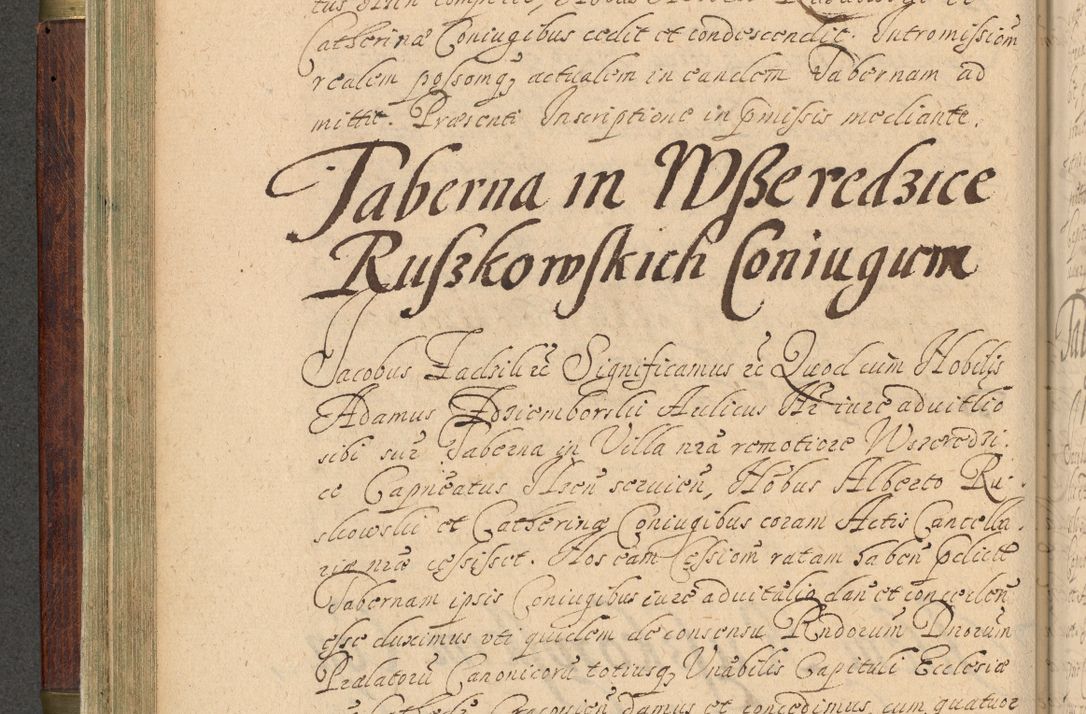 Catherinæ Coniugibus cedit et condescendit. Intromissiom
realem possomq, actualem in eandem Tabernam ad
mittit. Præsenti Inscriptione in pmissis mediante.
Taberna in Wßeredzice
Rußzkowskich Coniugum
Jacobus Zadsik etc Significamus etc Quod cum Nobilis
Adamus Dziemborskii Aulicus Nr iure aduitlio
sibi sur Taberna in Villa nra remotiore Wszeredzi,
ce Capneatus Nren seruien, Nobus Alberto Ru,
skowskii et Catherinæ Coniugibus coram Actis Cancella,
riæ nræ cessisset. Nos eam Cessiom ratam haben pdictt
Tabernam ipsis Coniugibus iure aduitalio dan et conceden
esse duximus vti quidem de consensu Rndorum Dnorum
Prælatoru Canonicoru totiusq, Vnabilis Capituli Ecclesiæ
Cracovien damus et concedimus cum quatuor